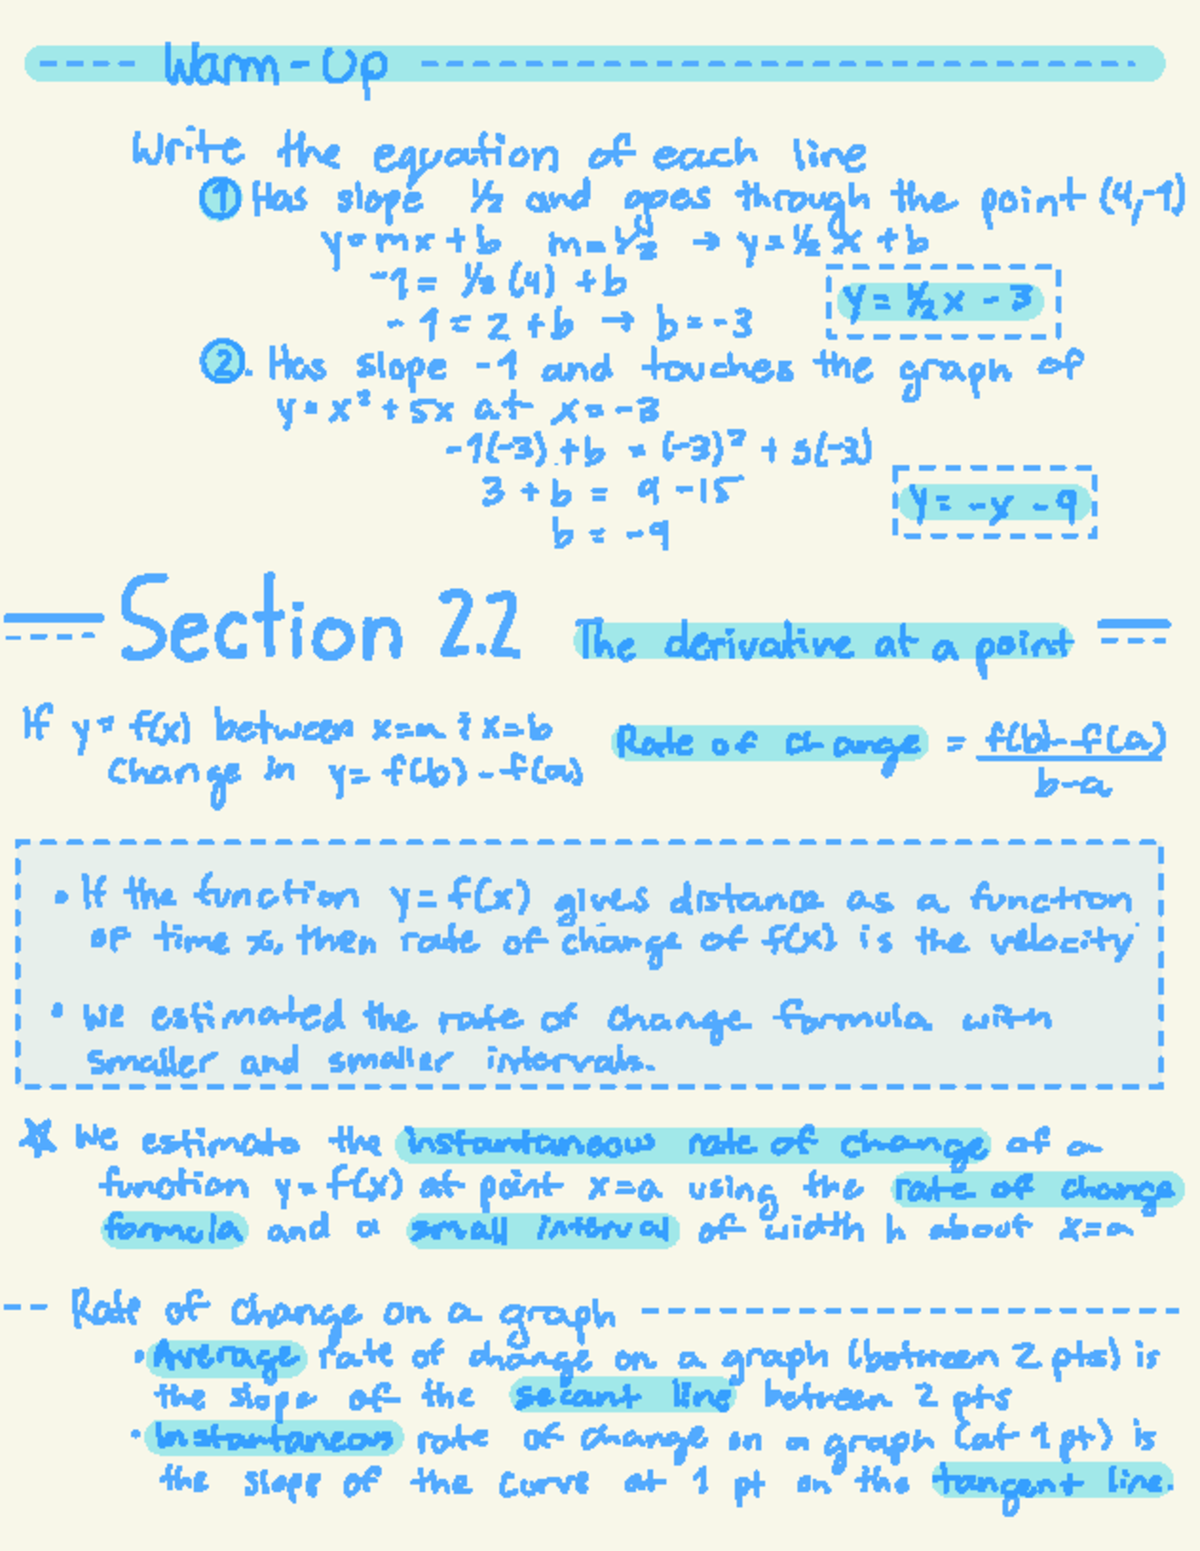 Warm-Up
Write the equation of each line
① Has slope ½ and goes through the point (4,-1)
y=mx+b m=½ → y=½x+b
-1= ½(4) +b
-1=2+b → b=-3
y=½x-3
②. Has slope -1 and touches the graph of
y=x²+5x at x=-3
-1(-3)+b = (-3)² + 5(-3)
3+b = 9-15
b = -9
y=-x-9
Section 2.2 The derivative at a point
If y=f(x) between x=a & x=b
Change in y=f(b)-f(a)
Rate of change = f(b)-f(a)
b-a
• If the function y=f(x) gives distance as a function
of time x, then rate of change of f(x) is the velocity
• We estimated the rate of change formula with
smaller and smaller intervals.
☆ We estimate the instantaneous rate of change of a
function y=f(x) at point x=a using the rate of change
formula and a small interval of width h about x=a
Rate of change on a graph
• Average rate of change on a graph (between 2 pts) is
the slope of the secant line between 2 pts
• Instantaneous rate of change on a graph (at 1 pt) is
the slope of the curve at 1 pt on the tangent line.